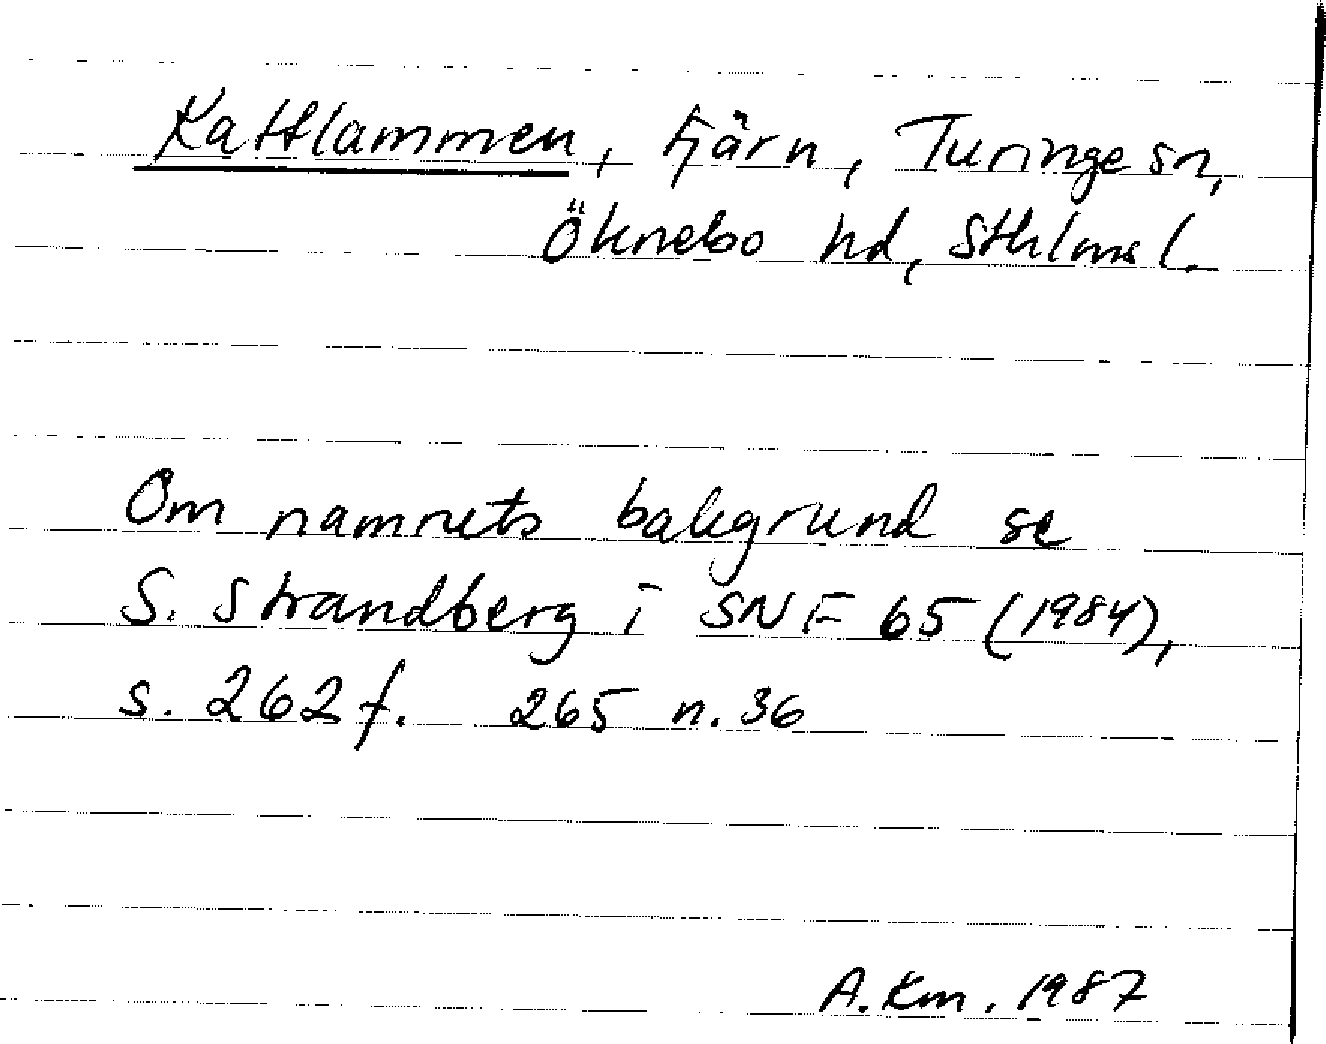 Kattlammen, tjärn, Turinge sn,
Öknebo hd, Sthlms l.
Om namnets bakgrund se
S. Strandberg i SNF 65 (1984),
s. 262 f. 265 n. 36
A. Km. 1987